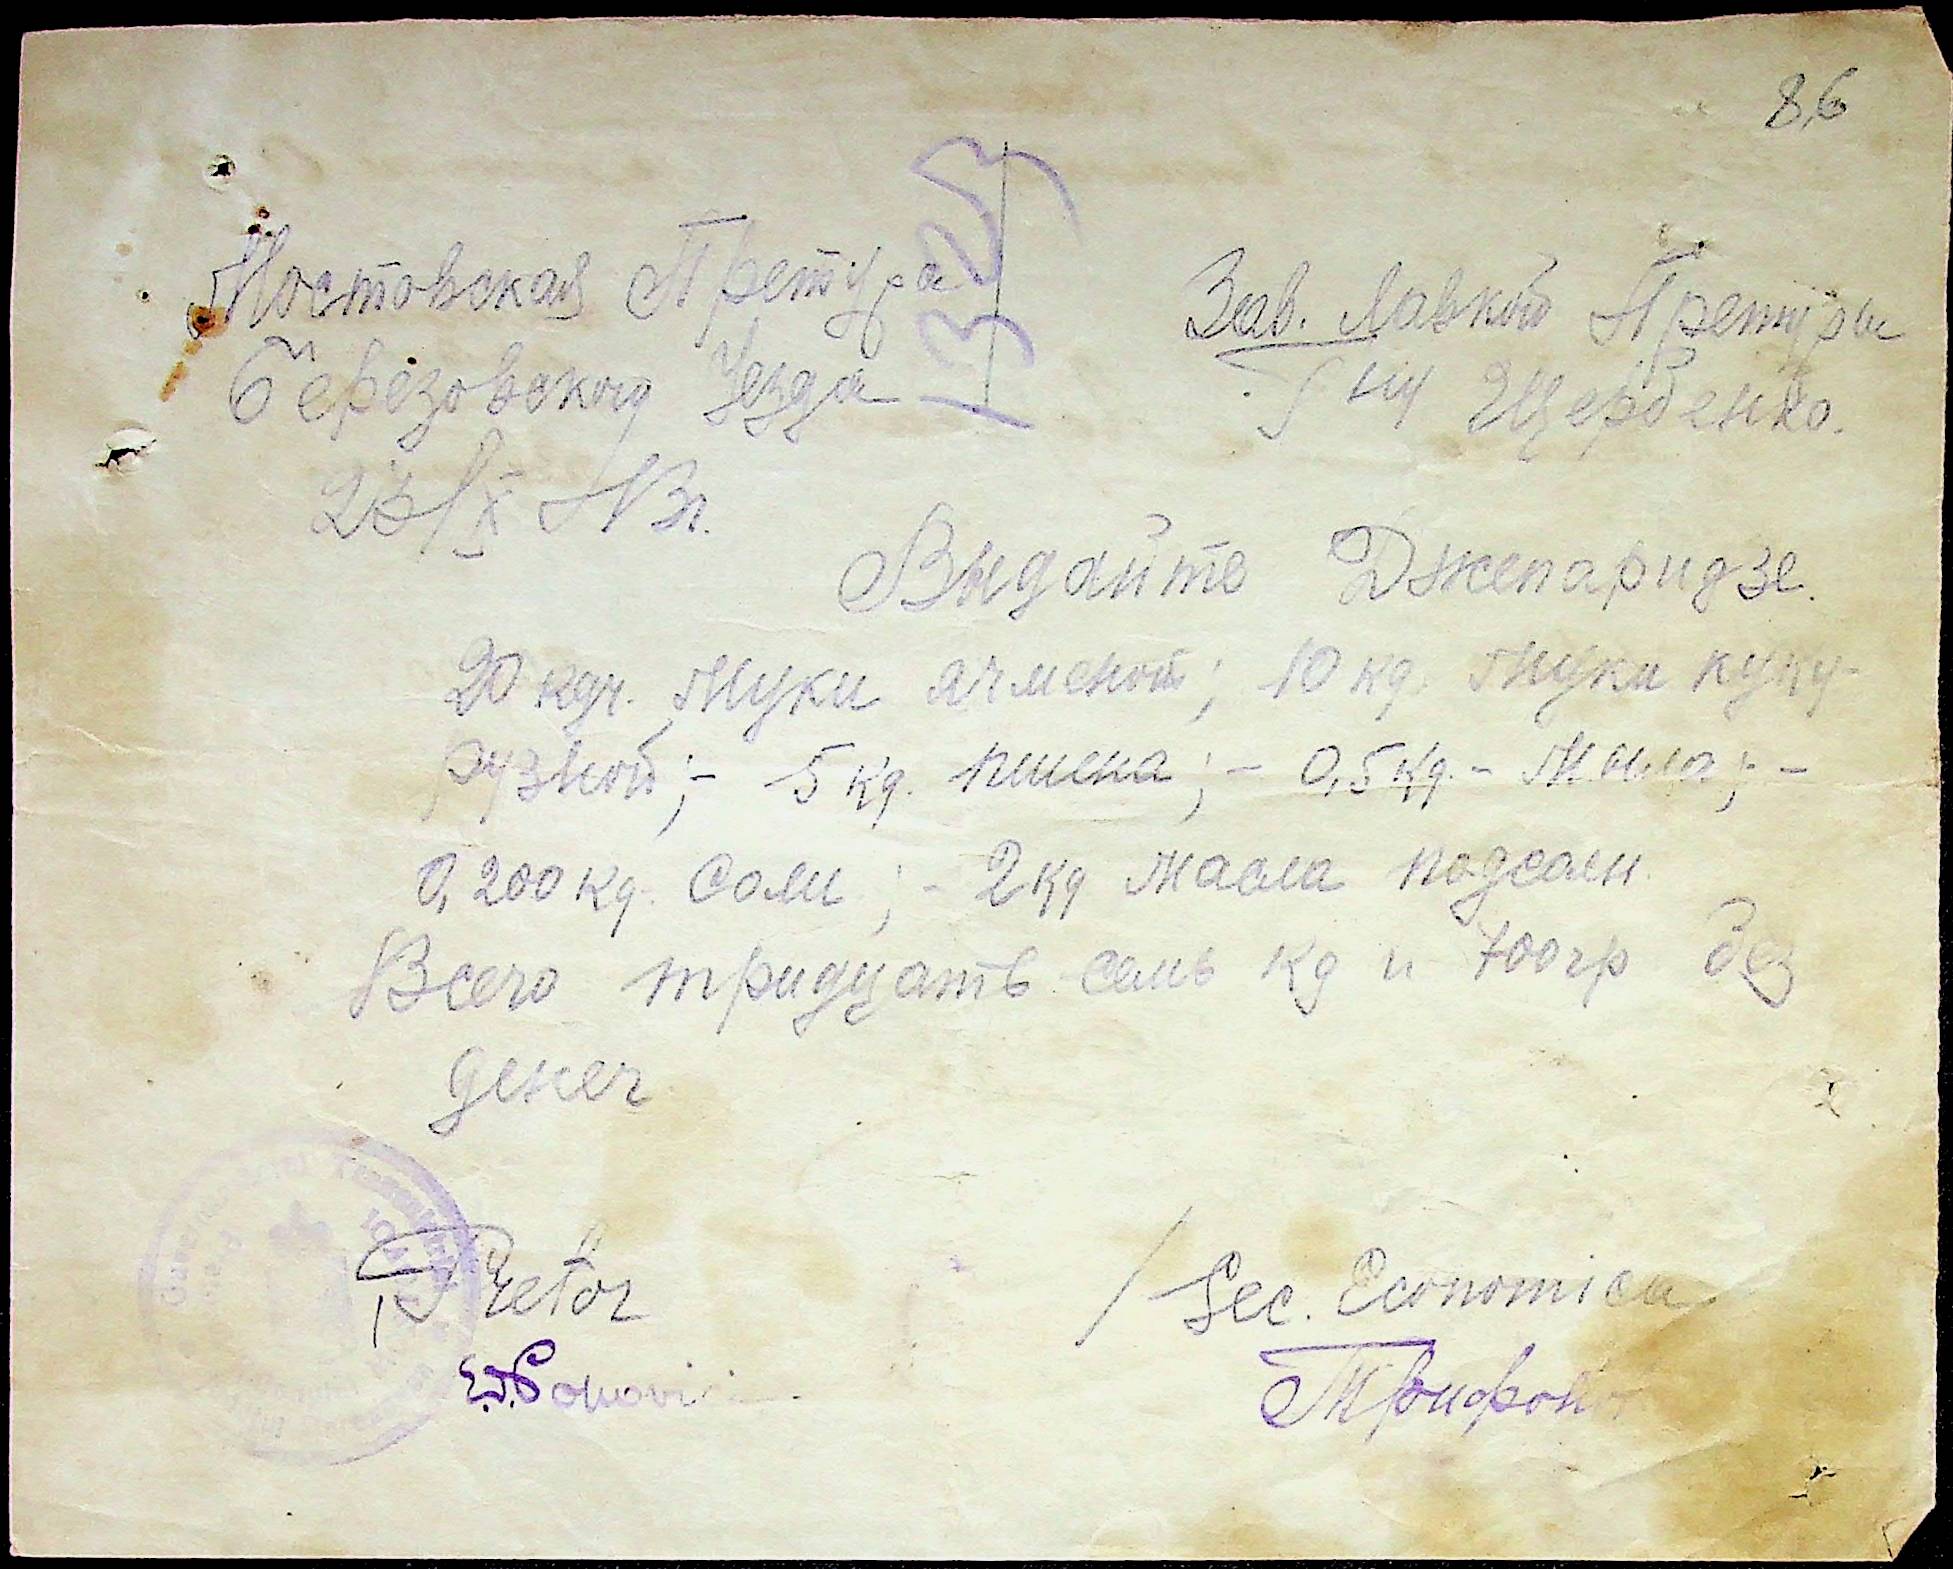 86
Мостовская Претура
Березовского Уезда
23/IX 43г.
Зав. Лавкой Претуры
Г-ну Щербенко.
Выдайте Джепаридзе.
20 кгч. Муки ячменой; 10 кг. Муки куку-
рузной; - 5 кг. пшена; - 0,5 кg. - Мыла; -
0,200 кg. Соли; - 2 кg Масла подсолн.
Всего тридцать семь кg и 700 гр без
денег
Pretor
Sec. Economica
Трифонов